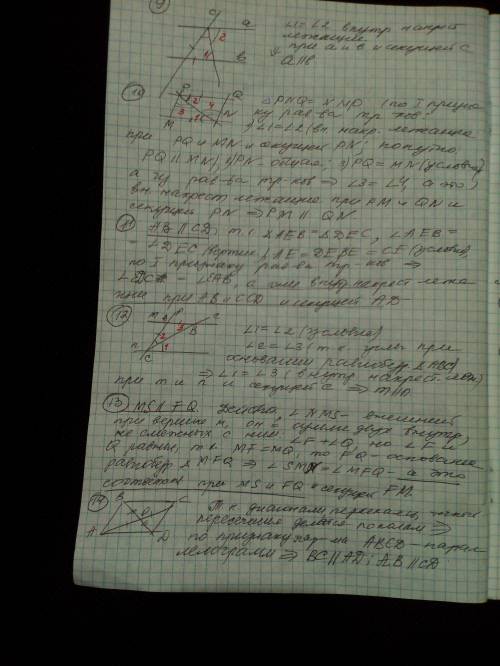 9
c
a
2
∠1=∠2 внутр накрест
лежащие
при a и b и секущей c
1
4
b
a∥b
10
P
Q
2
4
3
1
M
N
△PNQ = △ NMP (по I призна
ку рав-ва тр-ков
1) ∠1=∠2 (вн. накр. лежащие
при PQ и MN и секущей PN; попутно
PQ ∥ MN), 2) PN-общая; 3) PQ=MN (условие)
а из рав-ва тр-ков ⇒ ∠3=∠4, а это
вн. накрест лежащие при PM и QN и
секущей PN ⇒ PM ∥ QN
11
AB ∥ CD, т.к △AEB=△DEC, ∠AEB=
=∠DEC (вертик), AE=DE, BE=CE (условие)
по I признаку рав-ва тр-ков ⇒
∠EDC=∠EAB, а они внутр. накрест лежа-
щие при AB и CD и секущей AD
12
m
B
a
3
2
n
1
C
∠1=∠2 (условие)
∠2=∠3 (т.к. углы при
основании равнобедр. △ABC)
⇒ ∠1=∠3 (внутр накрест леж)
при m и n и секущей c ⇒ m∥n
13
MS ∥ FQ. ∠NMS- внешний
при вершине M, он = сумме двух внутр,
не смежных с ним ∠F+∠Q, но ∠F и
Q равны, т.к. MF=MQ, то FQ- основание
равнобедр △ MFQ ⇒ ∠SMN=∠MFQ- а это
соответств при MS и FQ и секущей FM.
14
B
C
O
A
D
Т.к диагонали пересекаясь, точкой
пересечения делятся пополам ⇒
по признаку пар-ма ABCD- парал
лелограмм ⇒ BC∥AD; AB∥CD